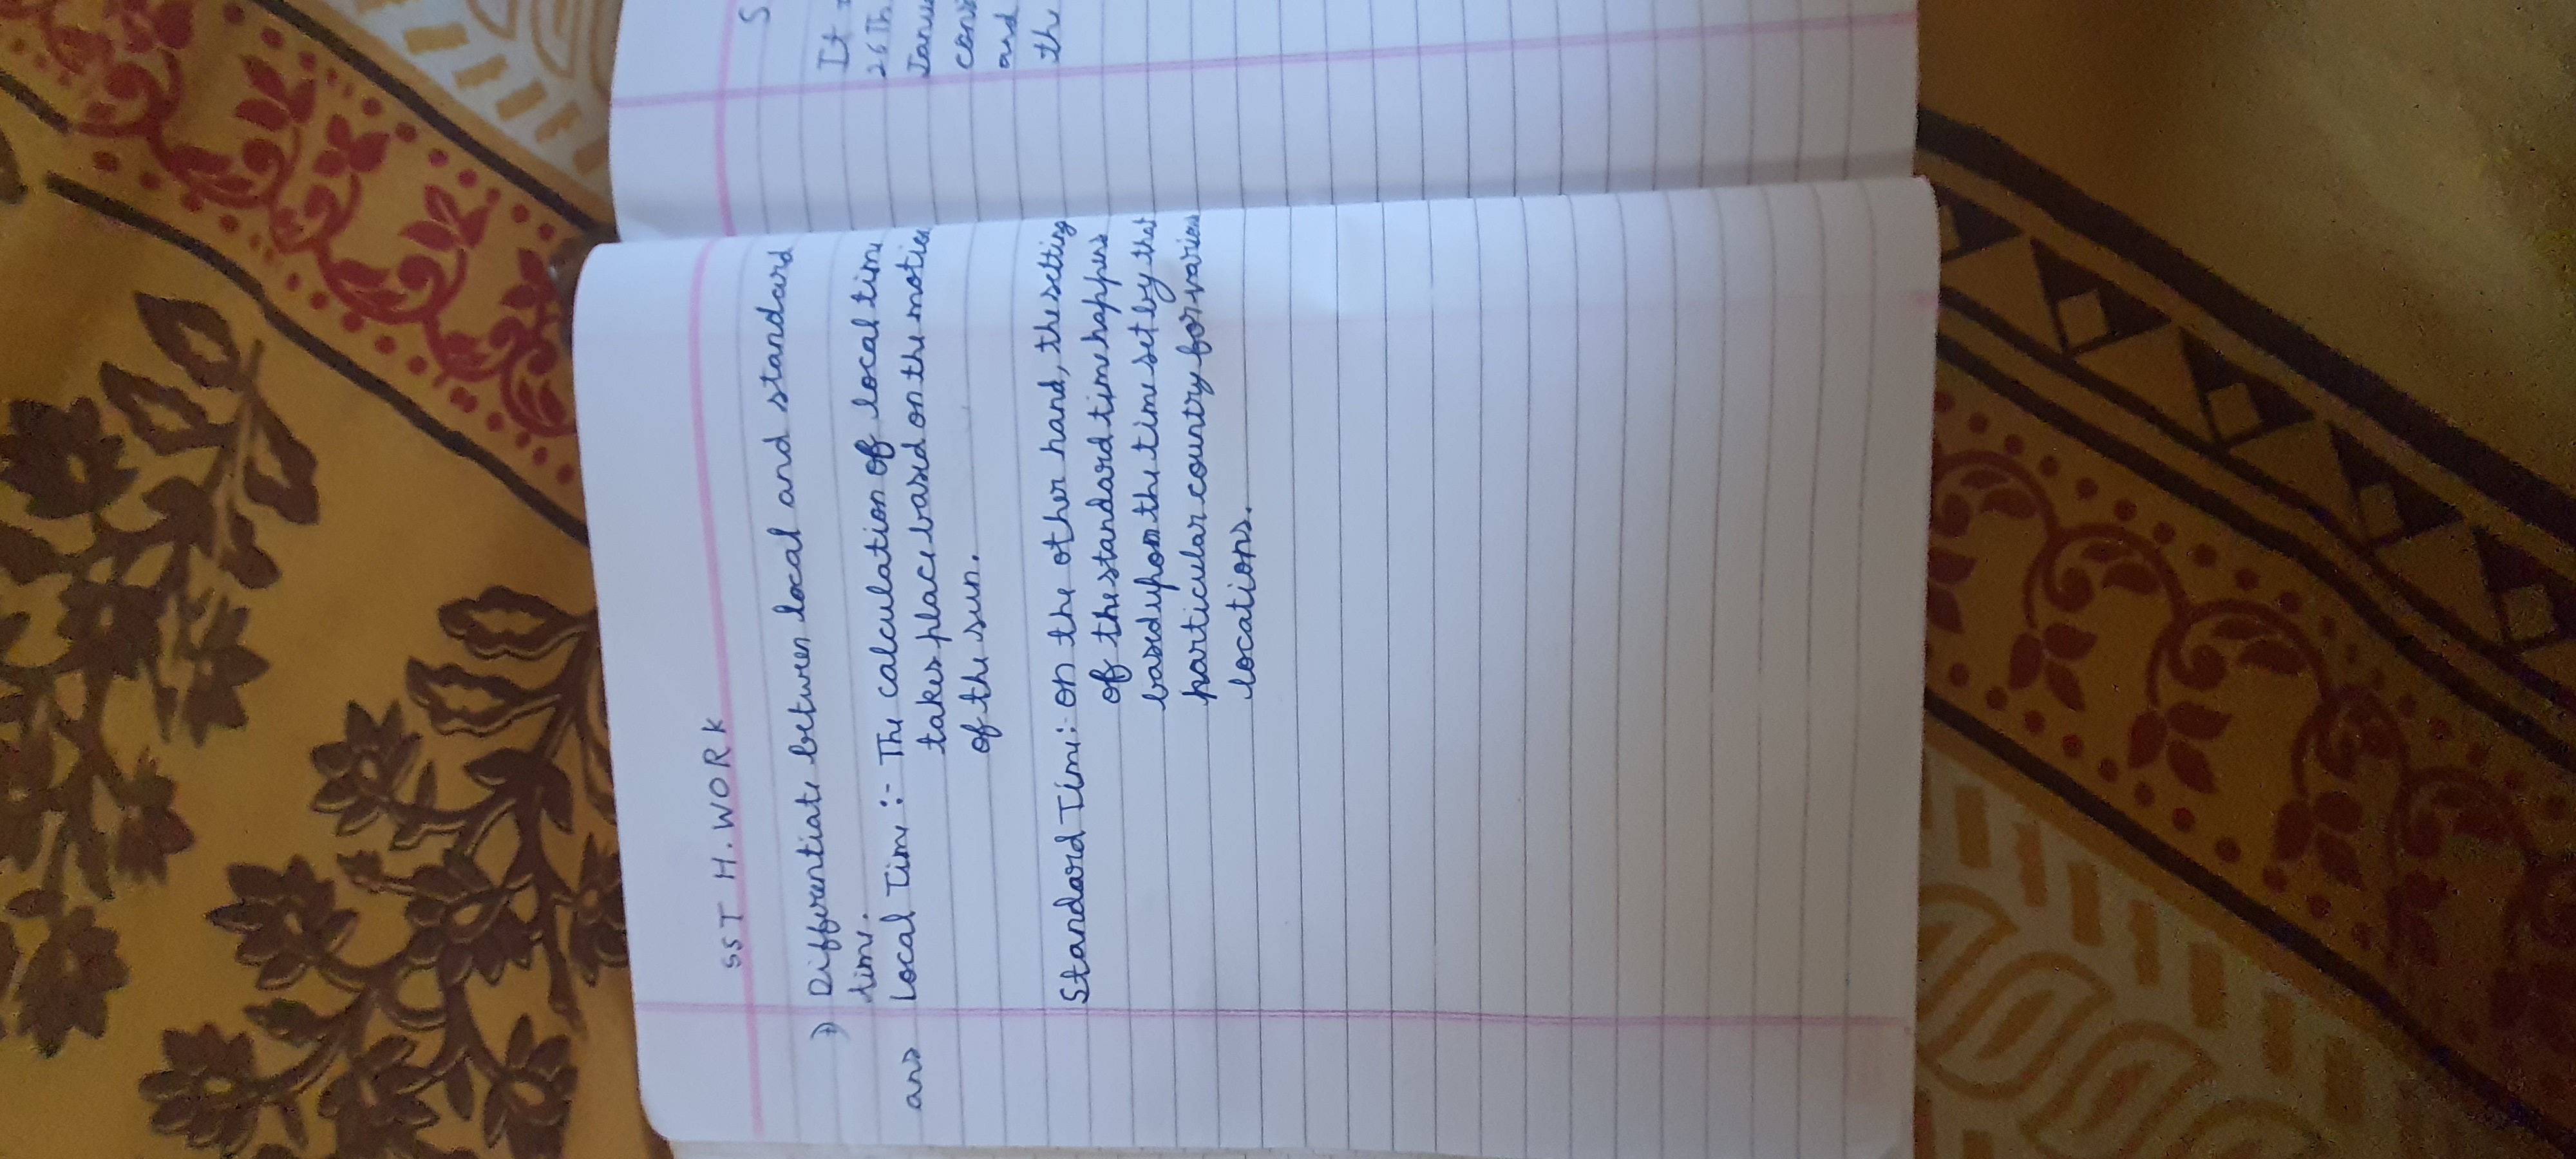 SST H.WORK
1) Differentiate between local and standard
time.
ans Local Time :- The calculation of local time
takes place based on the motion
of the sun.
Standard Time:- on the other hand, the setting
of the standard time happens
based upon the time set by that
particular country for various
locations.
S
It
26 Th
Janu
cons
and
the